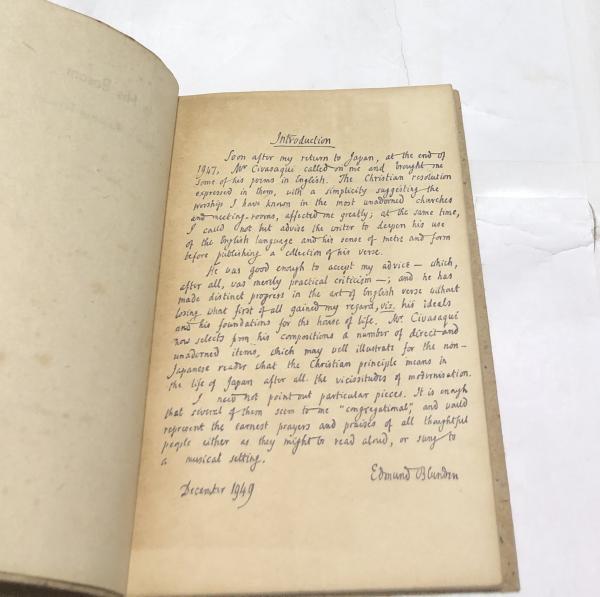 His Bosom
Introduction
Soon after my return to Japan, at the end of
1947, Mr Civasaqui called on me and brought me
some of his poems in English. The Christian resolution
expressed in them, with a simplicity suggesting the
worship I have known in the most unadorned churches
and meeting-rooms, affected me greatly; at the same time,
I could not but advise the writer to deepen his use
of the English language and his sense of metre and form
before publishing a collection of his verse.
He was good enough to accept my advice — which,
after all, was merely practical criticism —; and he has
made distinct progress in the art of English verse without
losing what first of all gained my regard, viz. his ideals
and his foundations for the house of life. Mr. Civasaqui
now selects from his compositions a number of direct and
unadorned items, which may well illustrate for the non-
Japanese reader what the Christian principle means in
the life of Japan after all the vicissitudes of modernisation.
I need not point out particular pieces. It is enough
that several of them seem to me "congregational", and would
represent the earnest prayers and praises of all thoughtful
people either as they might be read aloud, or sung to
a musical setting.
Edmund Blunden
December 1949